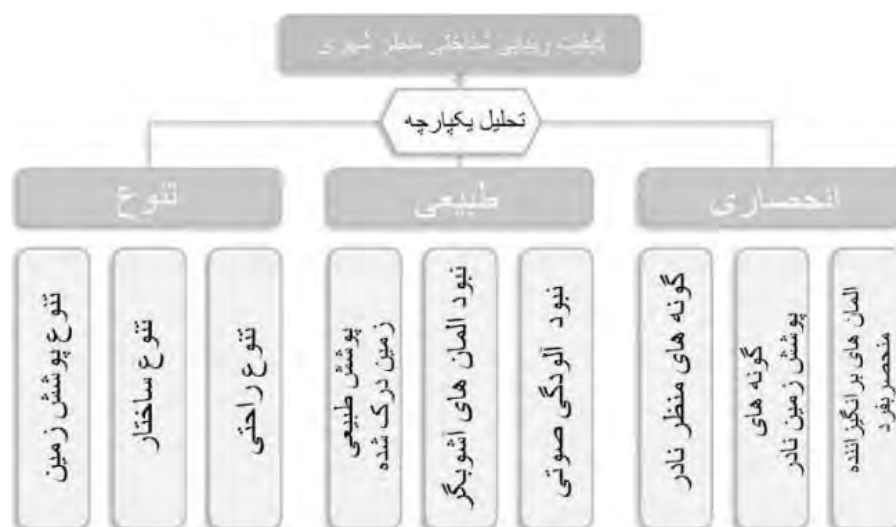 کیفیت زیبایی شناختی منظر شهری
تحلیل یکپارچه
انحصاری
طبیعی
تنوع
المان های برانگیزاننده
منحصربفرد
گونه های
پوشش زمین نادر
گونه های منظر نادر
نبود آلودگی صوتی
نبود المان های آشوبگر
پوشش طبیعی
زمین درک شده
تنوع راحتی
تنوع ساختار
تنوع پوشش زمین